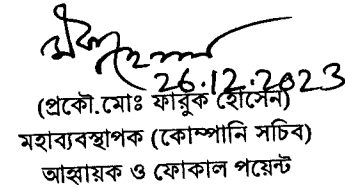 26.12.2023
(প্রকৌ.মোঃ ফারুক হোসেন)
মহাব্যবস্থাপক (কোম্পানি সচিব)
আহ্বায়ক ও ফোকাল পয়েন্ট